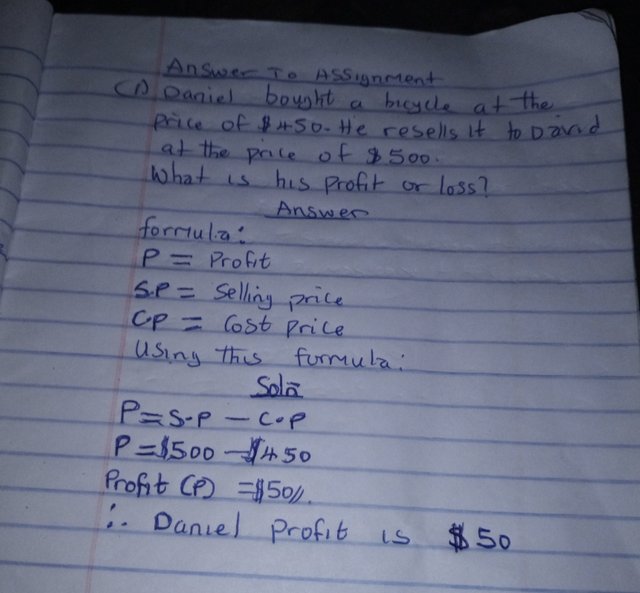 Answer To Assignment
(1) Daniel bought a bicycle at the
price of $450. He resells it to David
at the price of $500.
What is his profit or loss?
Answer
formula:
P = Profit
S.P = Selling price
C.P = Cost price
Using this formula:
Solñ
P = S.P - C.P
P = $500 - $450
Profit (P) = $50//.
∴ Daniel profit is $50